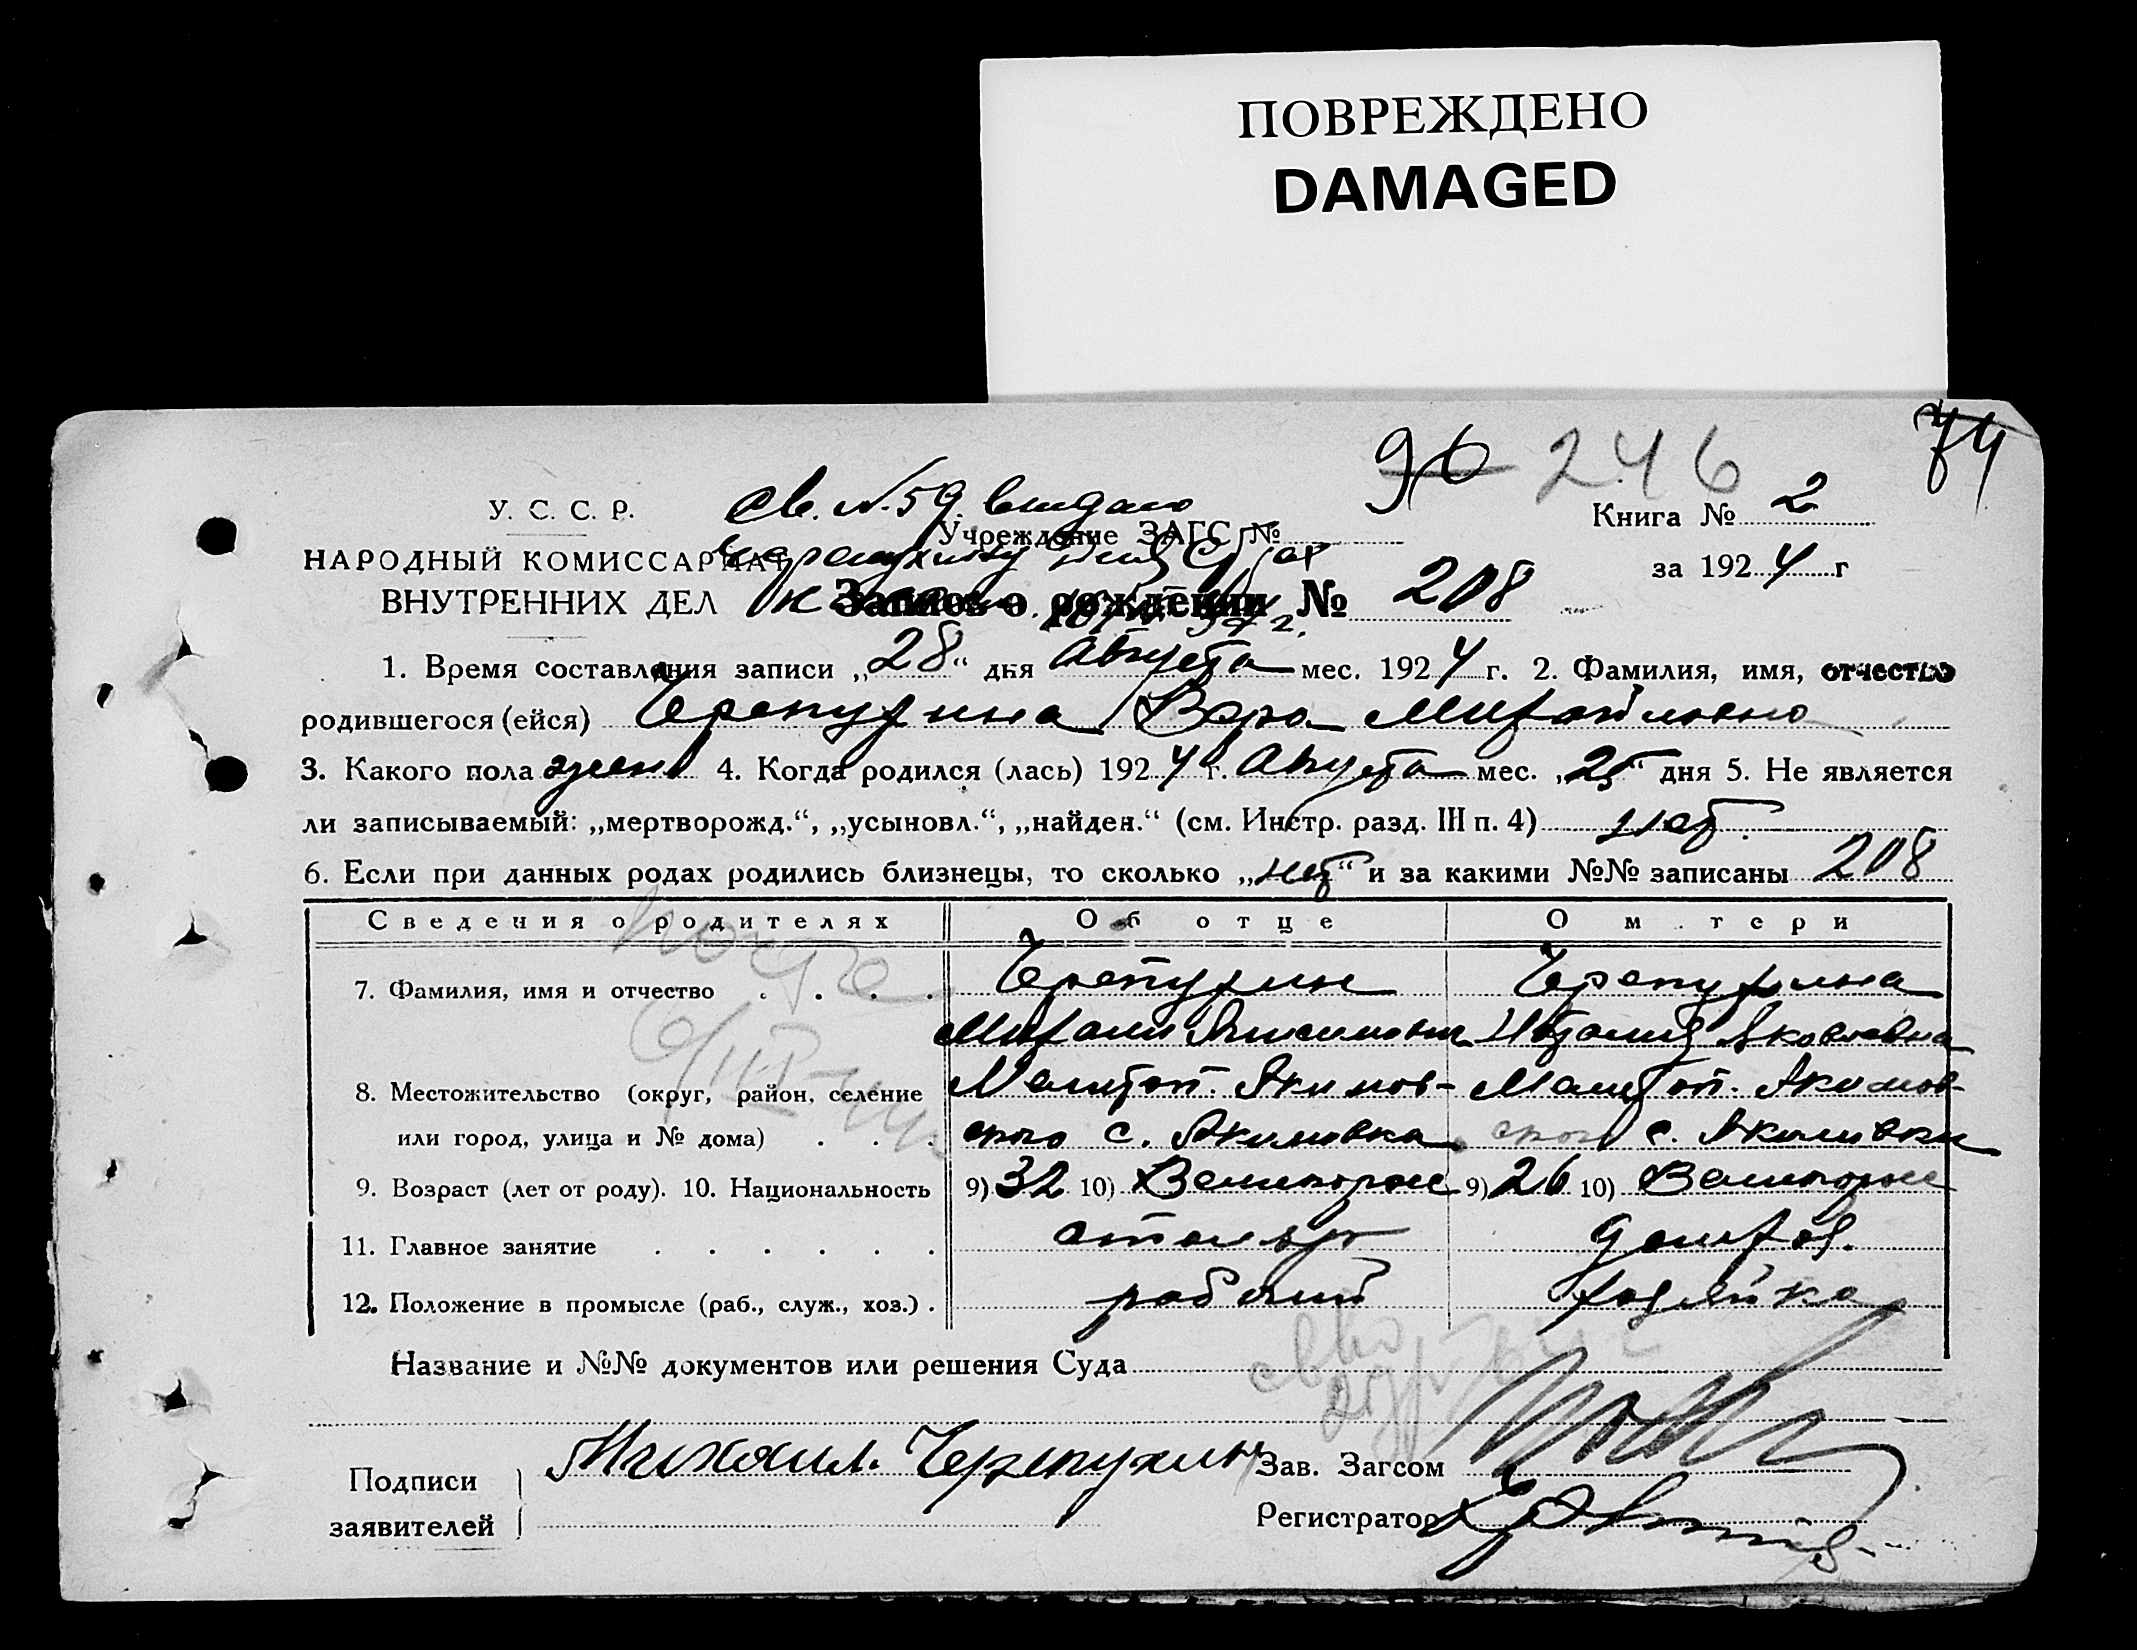 ПОВРЕЖДЕНО
DAMAGED
74
96 246
У. С. С. Р.
НАРОДНЫЙ КОМИССАРИАТ
ВНУТРЕННИХ ДЕЛ
Св. №59 выдано
Учреждение ЗАГС №
Книга № 2
за 1924 г
Запись о рождении № 208
1. Время составления записи „28“ дня Августа мес. 1924 г. 2. Фамилия, имя, отчество
родившегося (ейся) Черепухина Вера Михайловна
3. Какого пола жен 4. Когда родился (лась) 1924 г. Августа мес. „25“ дня 5. Не является
ли записываемый: „мертворожд.“, „усыновл.“, „найден.“ (см. Инстр. разд. III п. 4) нет.
6. Если при данных родах родились близнецы, то сколько „нет“ и за какими №№ записаны 208
Сведения о родителях Об отце О м тери
7. Фамилия, имя и отчество . . . . Черепухин Черепухина
Михаил Анисимович Наталия Яковлевна
8. Местожительство (округ, район, селение Мелитоп. Акимов- Мелитоп. Акимов-
или город, улица и № дома) . . . ского с. Акимовка ского с. Акимовки
9. Возраст (лет от роду). 10. Национальность 9) 32 10) Великорос 9) 26 10) Великорос
11. Главное занятие . . . . . . столяр домхоз.
12. Положение в промысле (раб., служ., хоз.) . рабочий хозяйка
Название и №№ документов или решения Суда
Подписи
заявителей
Михаил. Черепухин
Зав. Загсом
Регистратор